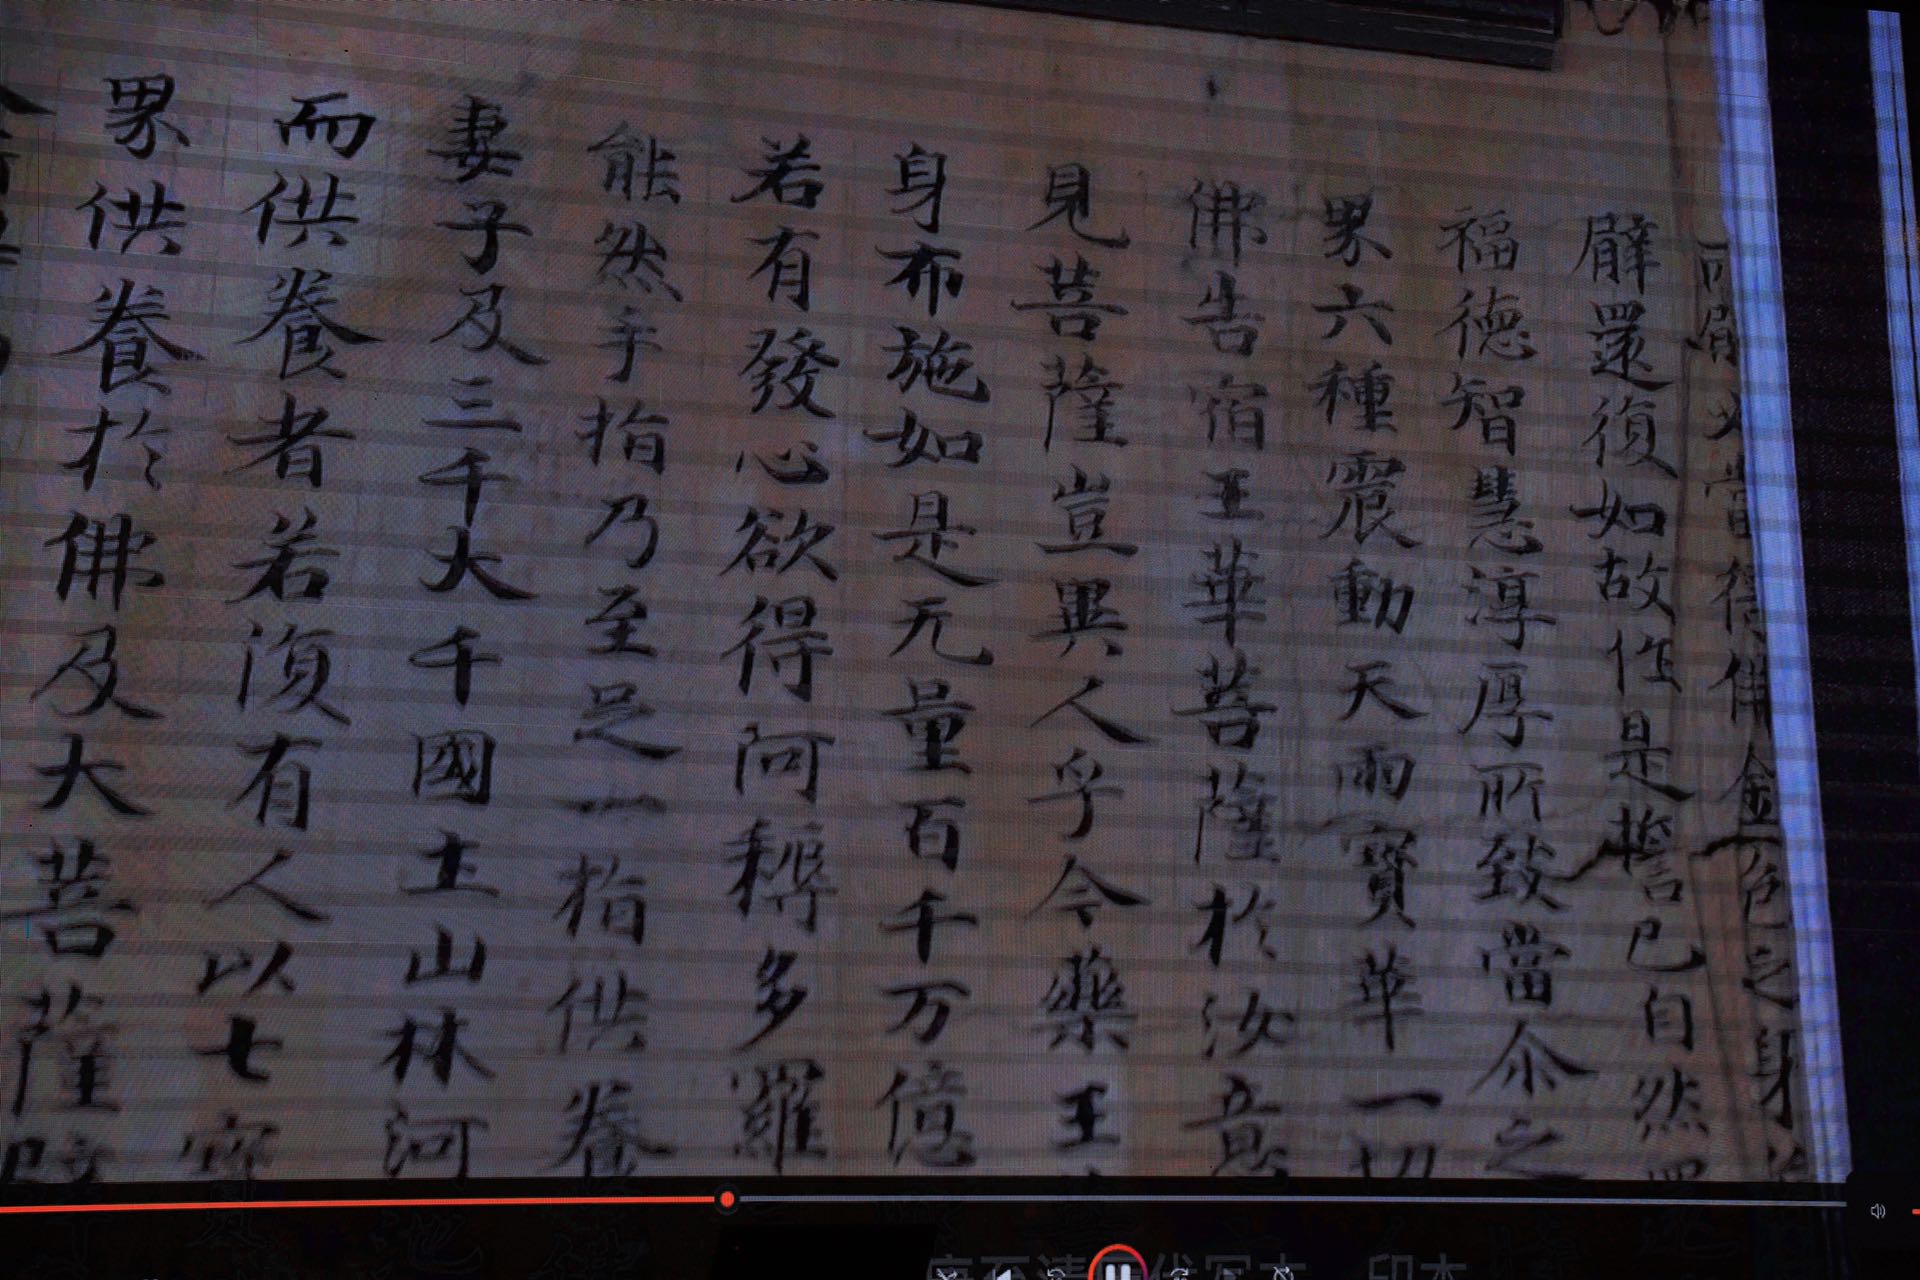 両臂必當得佛金色之身
臂還復如故作是誓已自然
福德智慧淳厚所致當尒之
界六種震動天雨寶華一切
佛告宿王華菩薩於汝意
見菩薩豈異人乎今藥王
身布施如是无量百千万億
若有發心欲得阿耨多羅
能然手指乃至足一指供養
妻子及三千大千國土山林河
而供養者若湏有人以七寶
界供養於佛及大菩薩